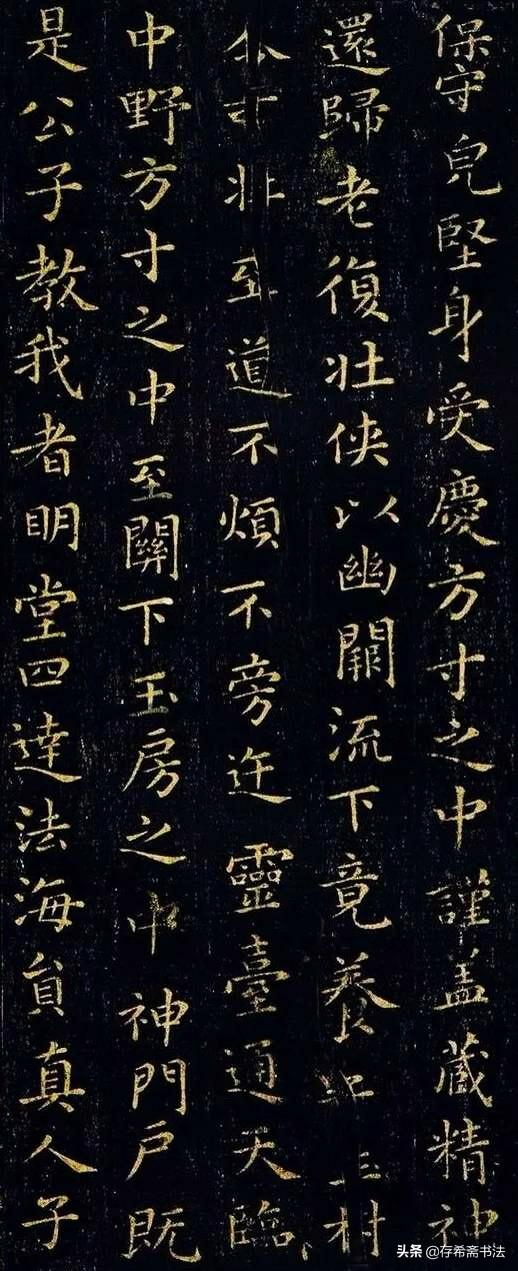 保守皃堅身受慶方寸之中謹盖藏精神
還歸老復壯俠以幽闕流下竟養村
至道不煩不旁迕靈臺通天臨
中野方寸之中至關下玉房之中神門戶既
是公子教我者眀堂四達法海貟真人子
头条 @存希斋书法